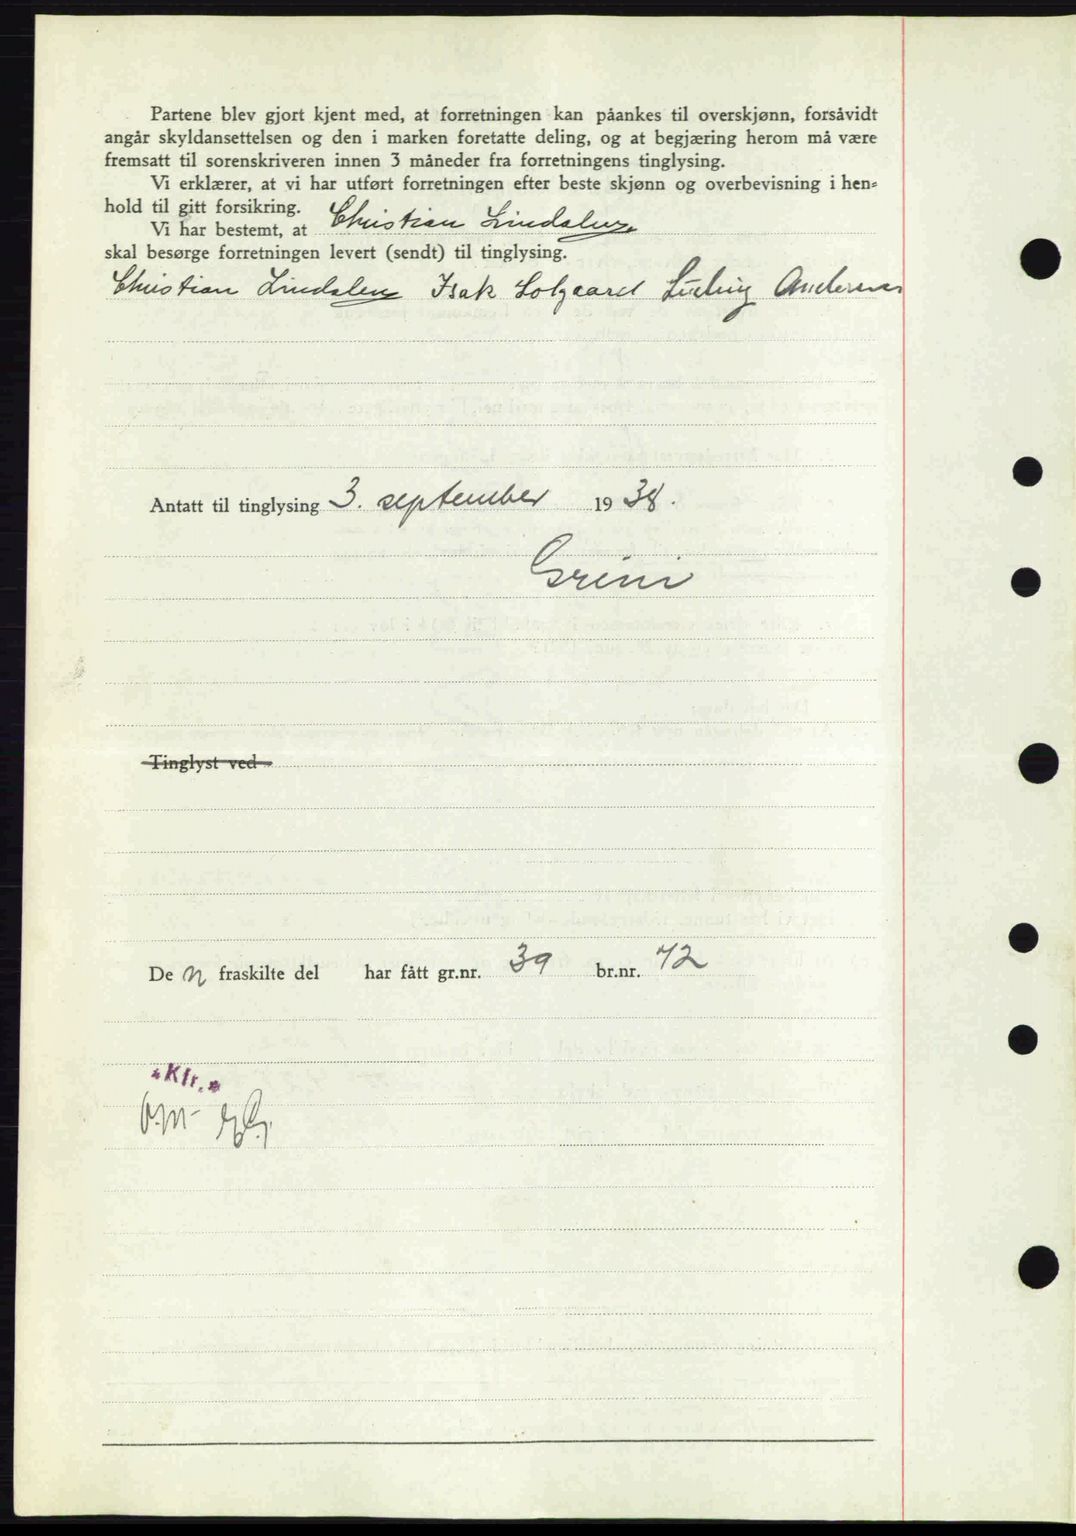 Partene blev gjort kjent med, at forretningen kan påankes til overskjønn, forsåvidt
angår skyldansettelsen og den i marken foretatte deling, og at begjæring herom må være
fremsatt til sorenskriveren innen 3 måneder fra forretningens tinglysing.
Vi erklærer, at vi har utført forretningen efter beste skjønn og overbevisning i hen=
hold til gitt forsikring.
Vi har bestemt, at Christian Lindalen
skal besørge forretningen levert (sendt) til tinglysing.
Christian Lindalen Isak Solgaard Ludvig Andersen
Antatt til tinglysing 3. september 1938.
Grini
Tinglyst ved
De n fraskilte del har fått gr.nr. 39 br.nr. 72
*Kfr.*